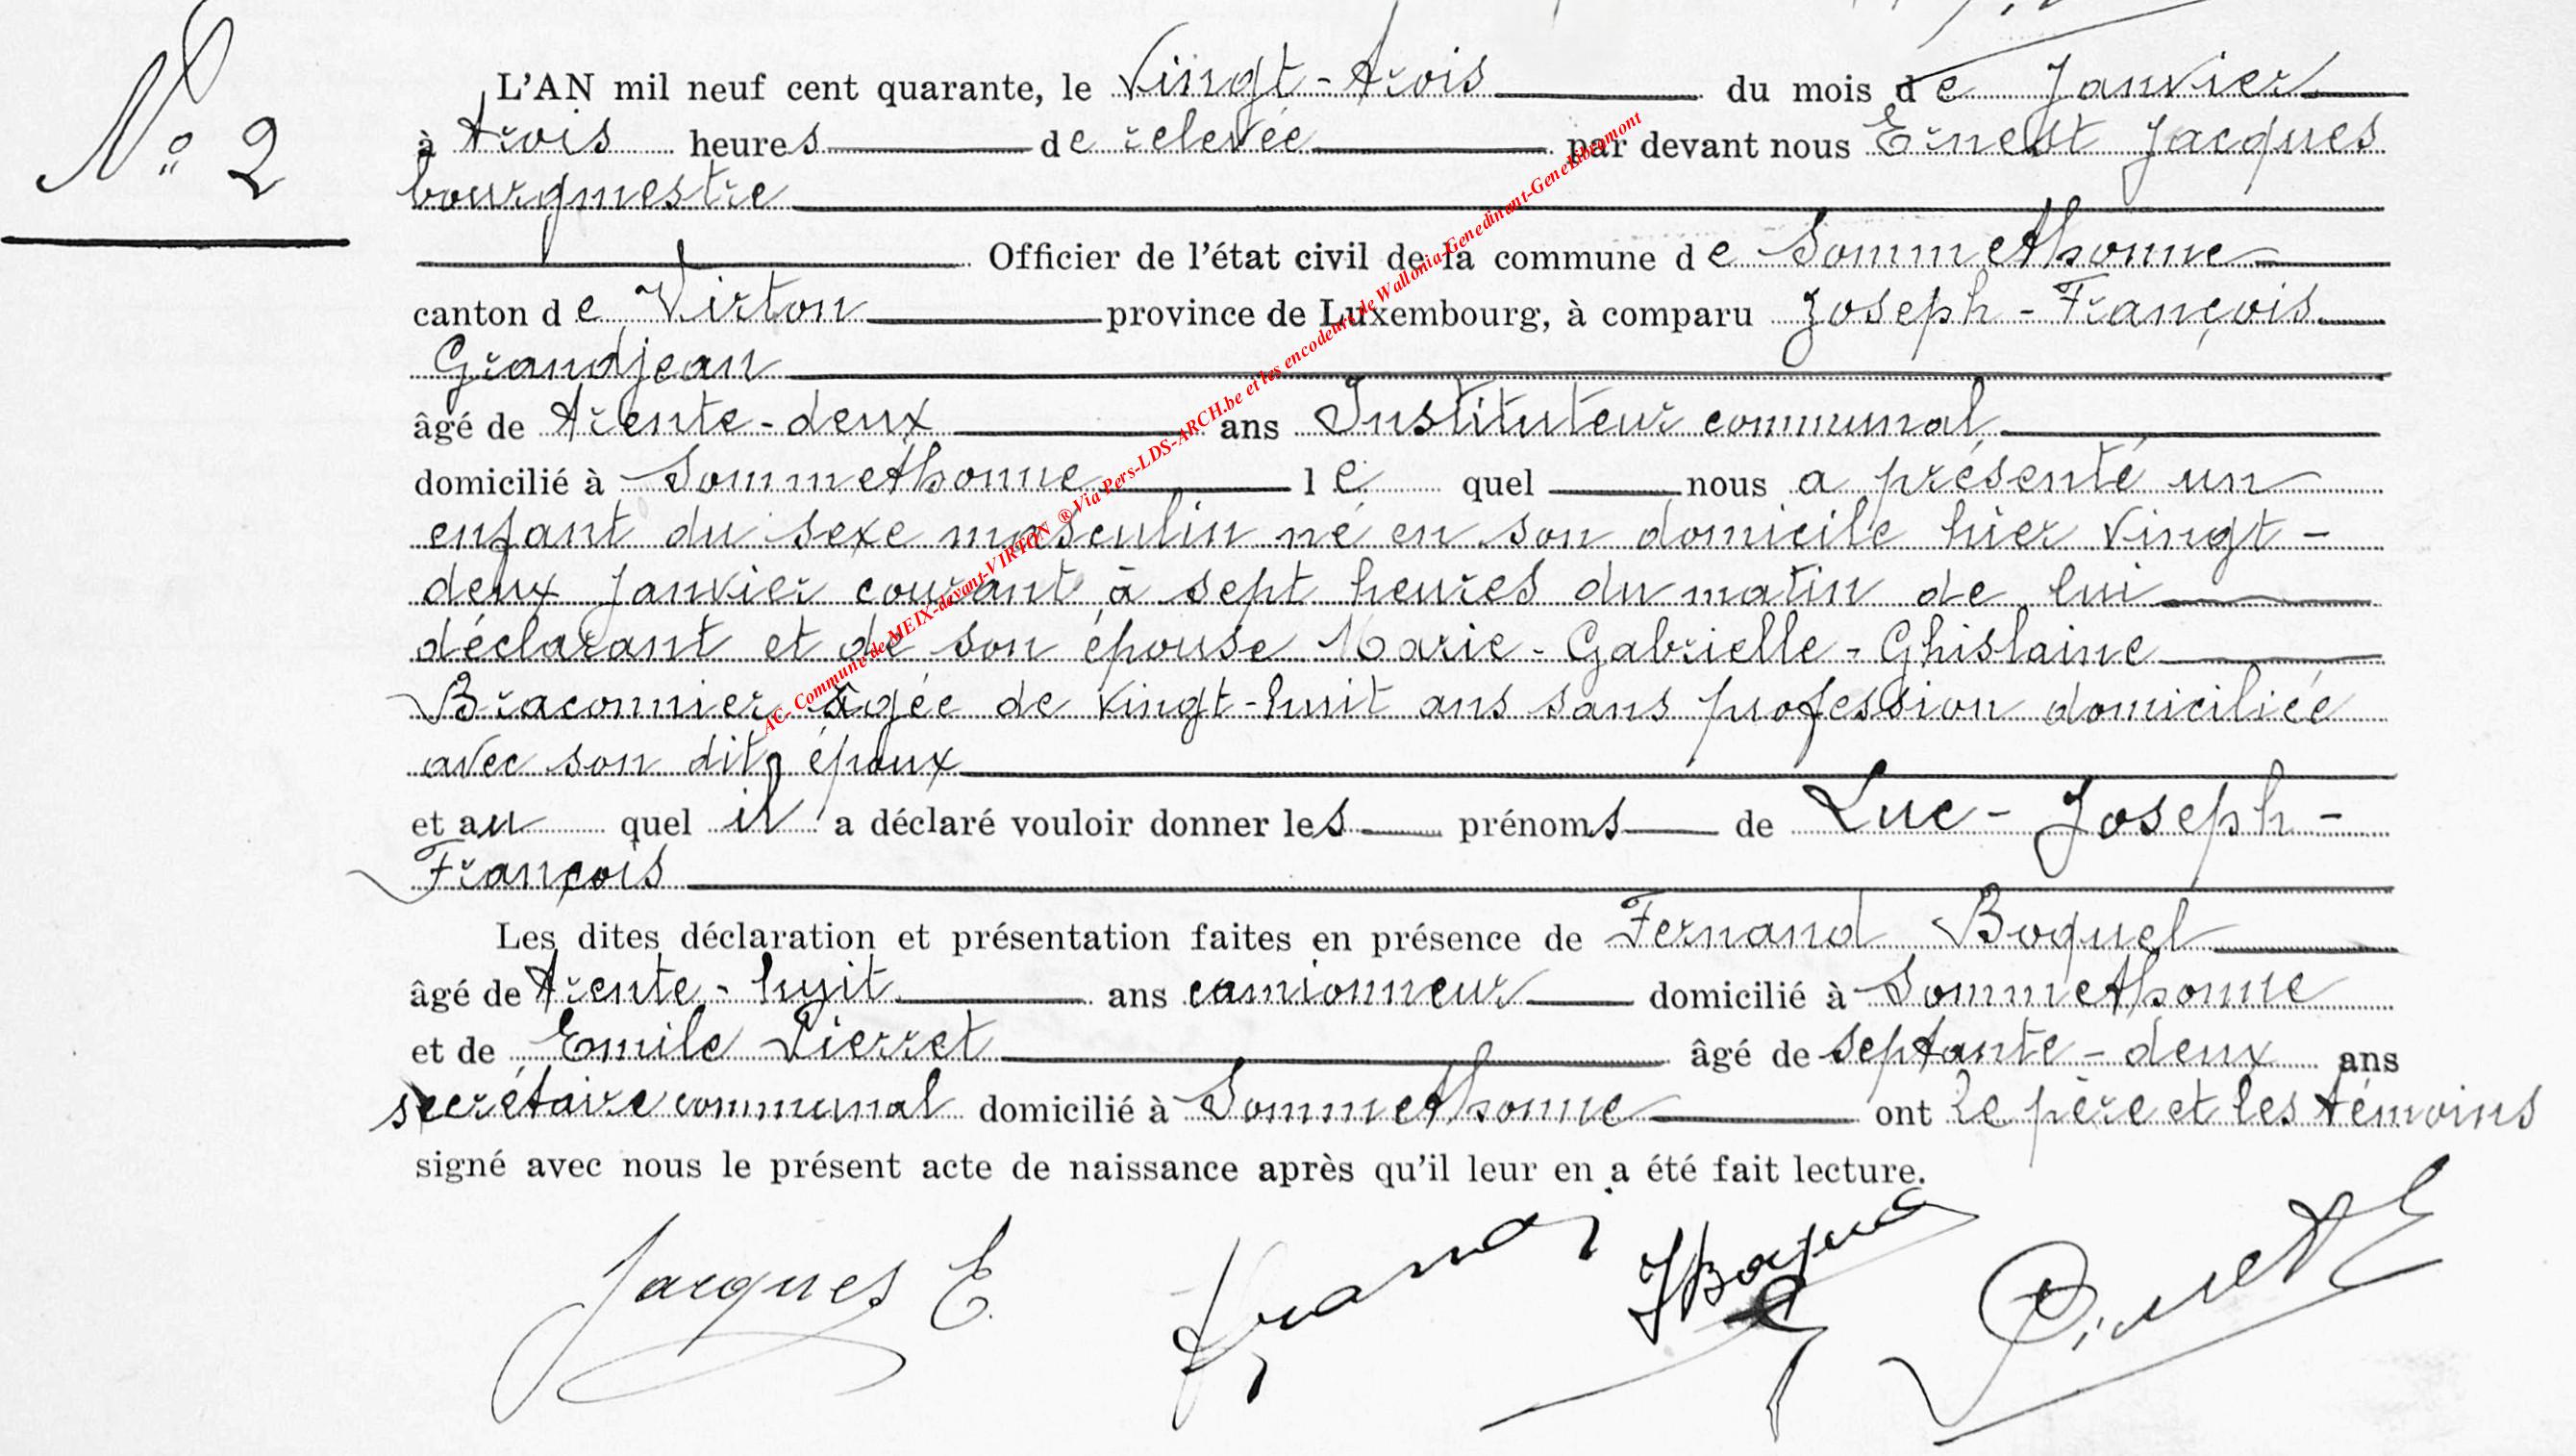 N° 2
L'AN mil neuf cent quarante, le Vingt-trois du mois de Janvier
à trois heures de relevée par devant nous Ernest Jacques
bourgmestre
Officier de l'état civil de la commune de Sommethonne
canton de Virton province de Luxembourg, à comparu Joseph-François
Grandjean
âgé de trente-deux ans Instituteur communal
domicilié à Sommethonne lequel nous a présenté un
enfant du sexe masculin né en son domicile hier vingt-
deux Janvier courant à sept heures du matin de lui
déclarant et de son épouse Marie-Gabrielle-Ghislaine
Braconnier âgée de vingt-huit ans sans profession domiciliée
avec son dit époux
et au quel il a déclaré vouloir donner les prénoms de Luc-Joseph-
François
Les dites déclaration et présentation faites en présence de Fernand Boquel
âgé de trente-huit ans camionneur domicilié à Sommethonne
et de Emile Pierret âgé de septante-deux ans
secrétaire communal domicilié à Sommethonne ont le père et les témoins
signé avec nous le présent acte de naissance après qu'il leur en a été fait lecture.
Jacques E.
AC- Commune de MEIX-devant-VIRTON ® Via Pers-LDS-ARCH.be et les encodeurs de Wallonia-Genedinant-GeneLibramont